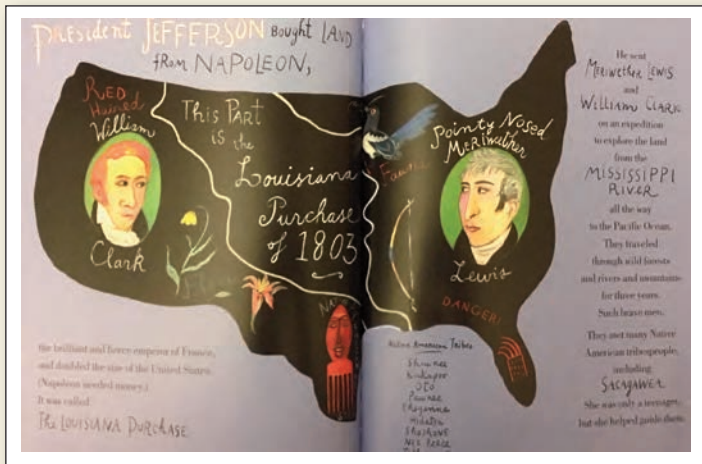 PRESIDENT JEFFERSON BOUGHT LAND
FROM NAPOLEON,
RED
Haired
William
Clark
This PART
is the
Louisiana
Purchase
of 1803
the brilliant and fierce emperor of France,
and doubled the size of the United States.
(Napoleon needed money.)
It was called
The LOUISIANA PURCHASE.
Fauna
Pointy Nosed
MERIWETHER
Lewis
DANGER!
Native American Tribes
Shawnee
Kickapoo
OTO
Pawnee
Cheyenne
Hidatsa
Shoshone
Nez Perce
He sent
MERIWETHER LEWIS
and
WILLIAM CLARK
on an expedition
to explore the land
from the
MISSISSIPPI
RIVER
all the way
to the Pacific Ocean.
They traveled
through wild forests
and rivers and mountains
for three years.
Such brave men.
They met many Native
American tribespeople,
including
SACAJAWEA.
She was only a teenager,
but she helped guide them.